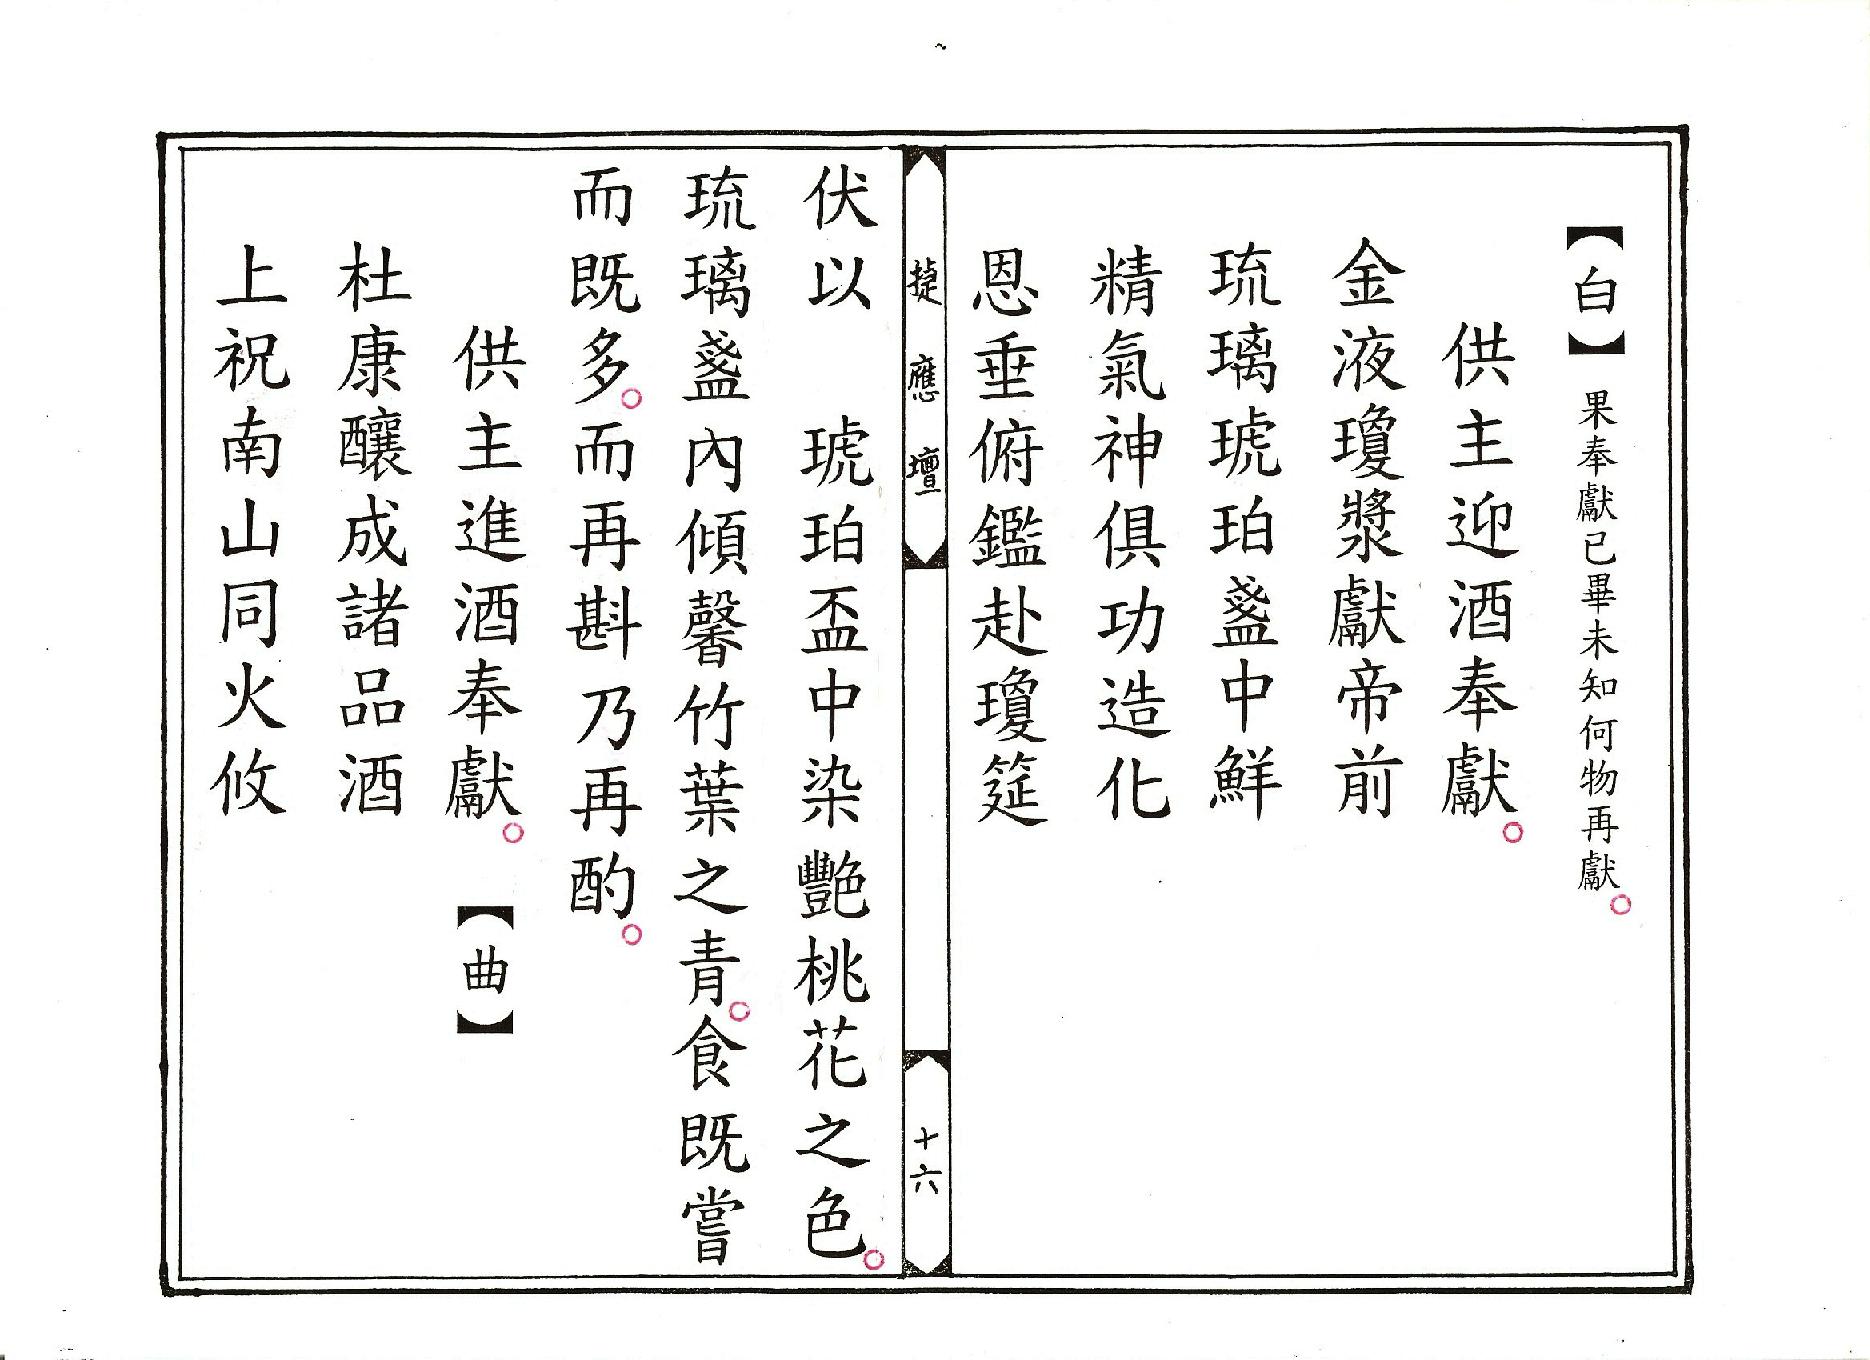 【白】果奉獻已畢未知何物再獻。
供主迎酒奉獻。
金液瓊漿獻帝前
琉璃琥珀盞中鮮
精氣神俱功造化
恩垂俯鑑赴瓊筵
捷應壇
十六
伏以　琥珀盃中染艷桃花之色。
琉璃盞內傾馨竹葉之青。食既嘗
而既多。而再斟乃再酌。
供主進酒奉獻。【曲】
杜康釀成諸品酒
上祝南山同火攸